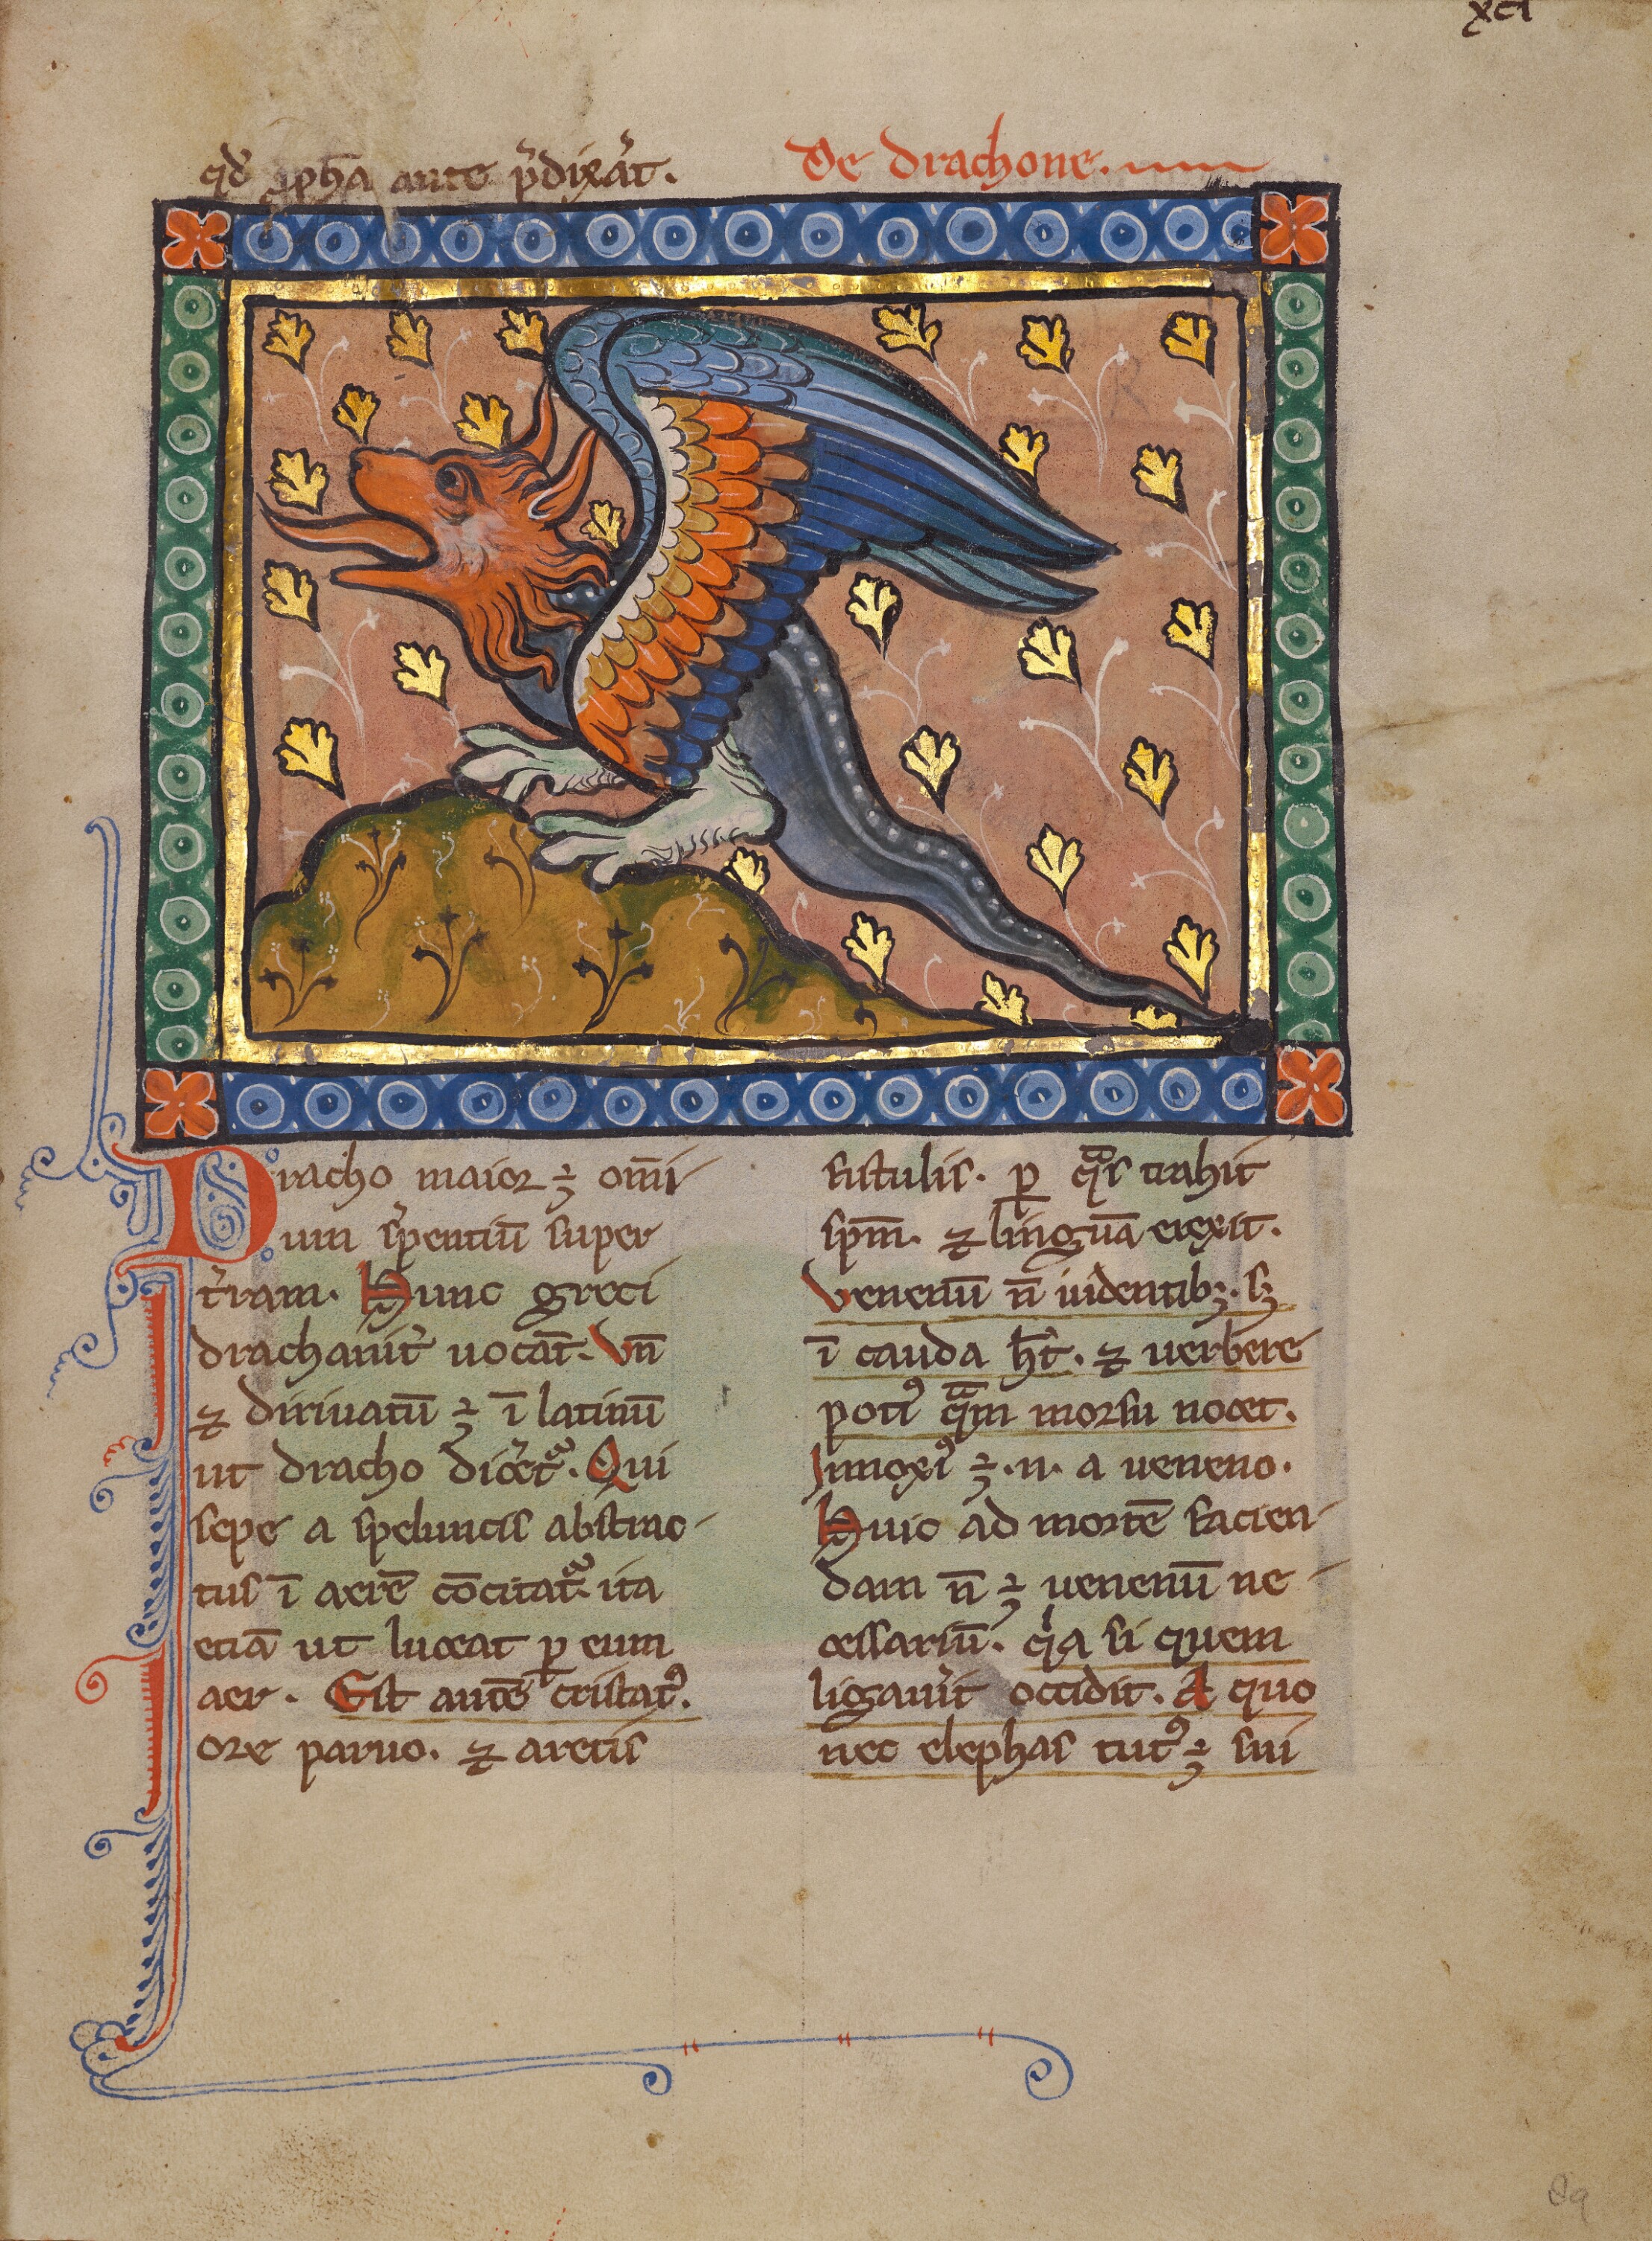 xci
qd̄ ꝓph̄a ante p̄dixāt.
De drachone.
Dracho maior ÷ om̄i
um s̄pentiū super
t̄ram. Hunc greci
drachanit᷑ uocāt. Vn̄
⁊ diriuatū ÷ ī latinū
ut dracho dicet᷑. Qui
sepe a speluncis abstrac
tus ī aerē cōcitat᷑. ita
etiā ut luceat ꝑ eum
aer. Est autē cristatꝰ.
ore paruo. ⁊ arctis
fistulis. ꝑ qᷓs trahit
spm̄. ⁊ linguā erexit.
Venenū n̄ iudentibꝫ. sꝫ
ī cauda h̄t. ⁊ uerbere
potiꝰ qᷓm morsu nocet.
Innoxiꝰ ÷ .n. a ueneno.
Huic ad mortē facien
dam n̄ ÷ uenenū ne
cessariū. qͥa si quem
ligauīt occidit. A quo
nec elephas tutꝰ ÷ sui
89